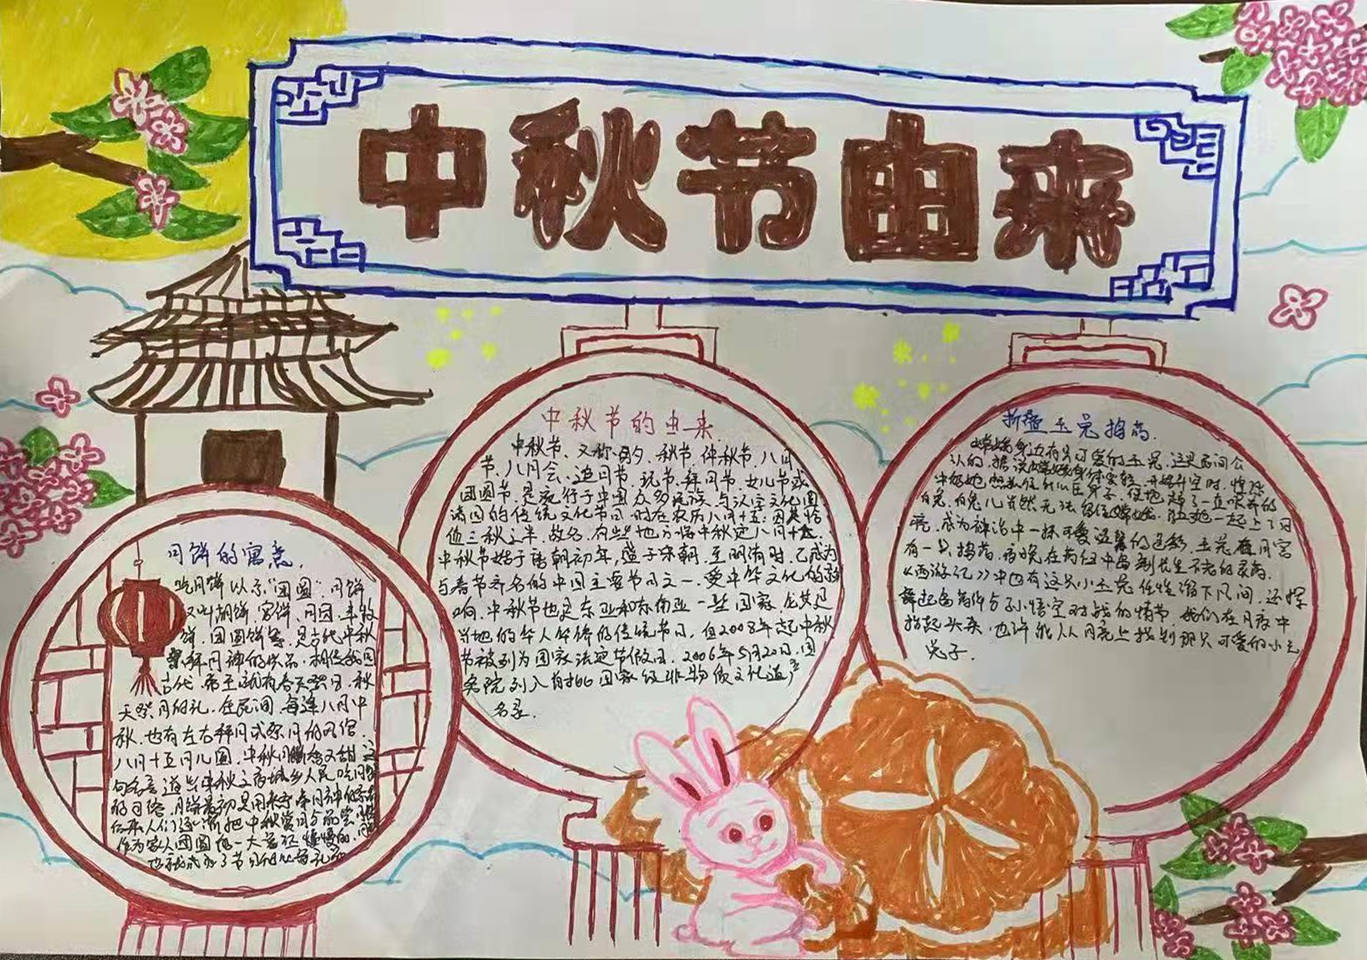 中秋节由来
中秋节的由来
中秋节、又称月夕、秋节、仲秋节、八月
节、八月会、追月节、玩节、拜月节、女儿节或
团圆节,是流行于中国众多民族与汉字文化圈
诸国的传统文化节日,时在农历八月十五;因其恰
值三秋之半,故名,有些地方将中秋定八月十六。
中秋节始于唐朝初年,盛于宋朝,至明清时,已成为
与春节齐名的中国主要节日之一。受中华文化的影
响,中秋节也是东亚和东南亚一些国家,尤其是
当地的华人华侨的传统节日。自2008年起中秋
节被列为国家法定节假日。2006年5月20日,国
务院列入首批国家级非物质文化遗产
名录。
折叠玉兔捣药
嫦娥身边有只可爱的玉兔。这是民间公
认的。据说嫦娥身体变轻,开始升空时,惶恐
中抱起
白兔。白兔儿当然无法留住嫦娥,随她一起上了月
亮,成为神话中一抹可爱
有一只捣药
《西游记》中也有这只小玉兔任性溜下凡间,还挥
舞起捣药杵与孙悟空对战的情节。我们在月夜中
抬起头来,也许能从月亮上找到那只可爱的小玉
兔子。
月饼的寓意
吃月饼以示“团圆”。月饼
又叫胡饼、宫饼、月团、丰收
饼、团圆饼等,是古代中秋
祭拜月神的供品。相传我国
古代,帝王就有春天祭日、秋
天祭月的礼,在民间,每逢八月中
秋,也有左右拜月或祭月的风俗
八月十五月儿圆,中秋月饼香又甜,这
句名言道出中秋之夜城乡人民吃月饼
的习俗,月饼最初是用来奉月神的
后来人们逐渐把中秋赏月与品尝
作为家人团圆的一大象征,慢慢的
也就成为了节日的必备礼品